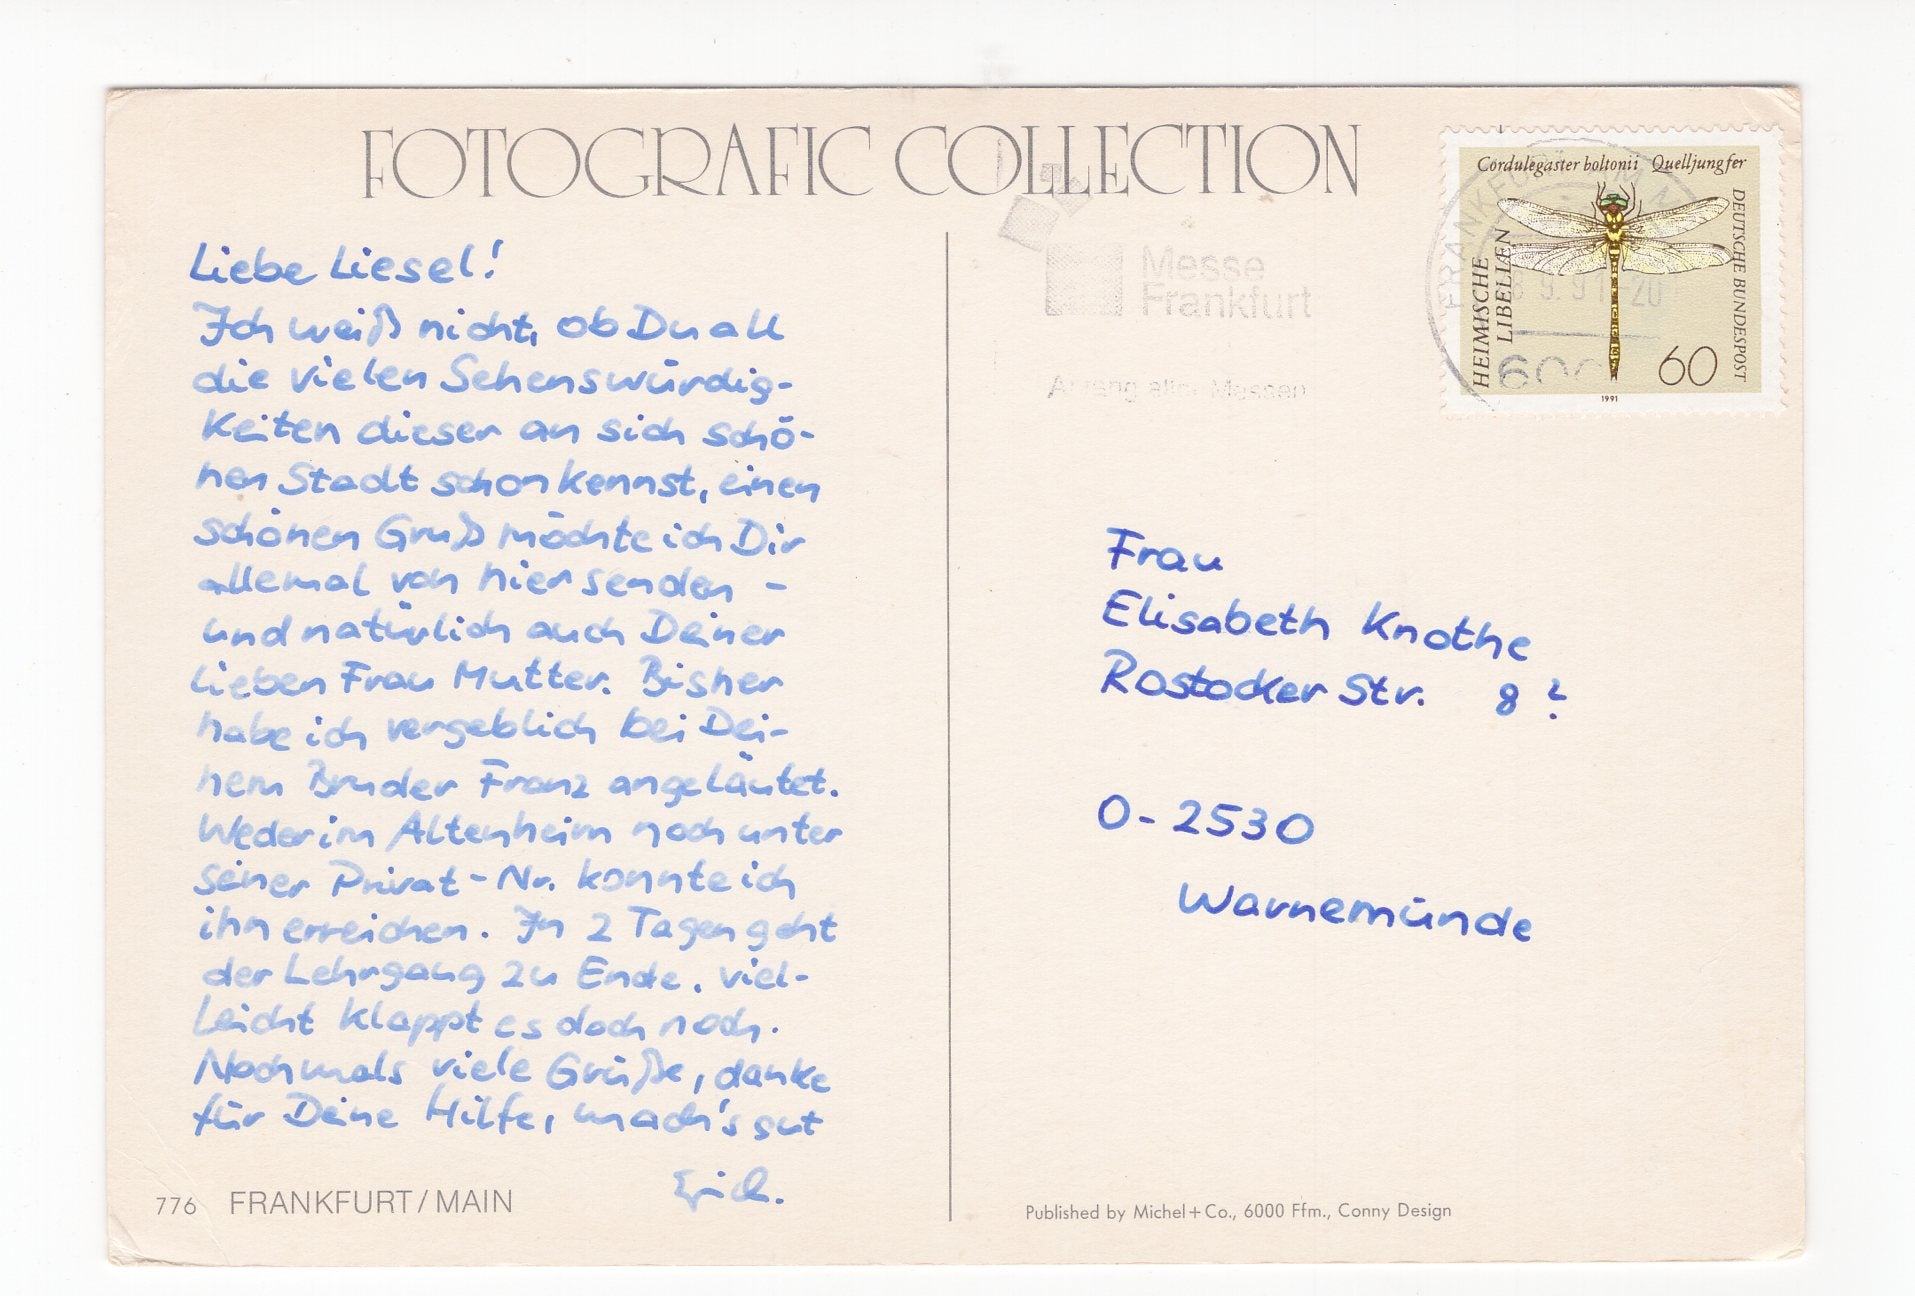 FOTOGRAFIC COLLECTION
Liebe Liesel!
Ich weiß nicht, ob Du all
die vielen Sehenswürdig-
keiten dieser an sich schö-
nen Stadt schon kennst, einen
schönen Gruß möchte ich Dir
allemal von hier senden -
und natürlich auch Deiner
lieben Frau Mutter. Bisher
habe ich vergeblich bei Dei-
nem Bruder Franz angeläutet.
Weder im Altenheim noch unter
seiner Privat-Nr. konnte ich
ihn erreichen. In 2 Tagen geht
der Lehrgang zu Ende. Viel-
leicht klappt es doch noch.
Nochmals viele Grüße, danke
für Deine Hilfe, mach's gut
Erich.
776 FRANKFURT/MAIN
Messe
Frankfurt
Messen
Cordulegaster boltonii Quelljungfer
HEIMISCHE
LIBELLEN
DEUTSCHE BUNDESPOST
60
1991
FRANKFURT
9.91-20
600
Frau
Elisabeth Knothe
Rostocker Str. 8 ?
O-2530
Warnemünde
Published by Michel+Co., 6000 Ffm., Conny Design